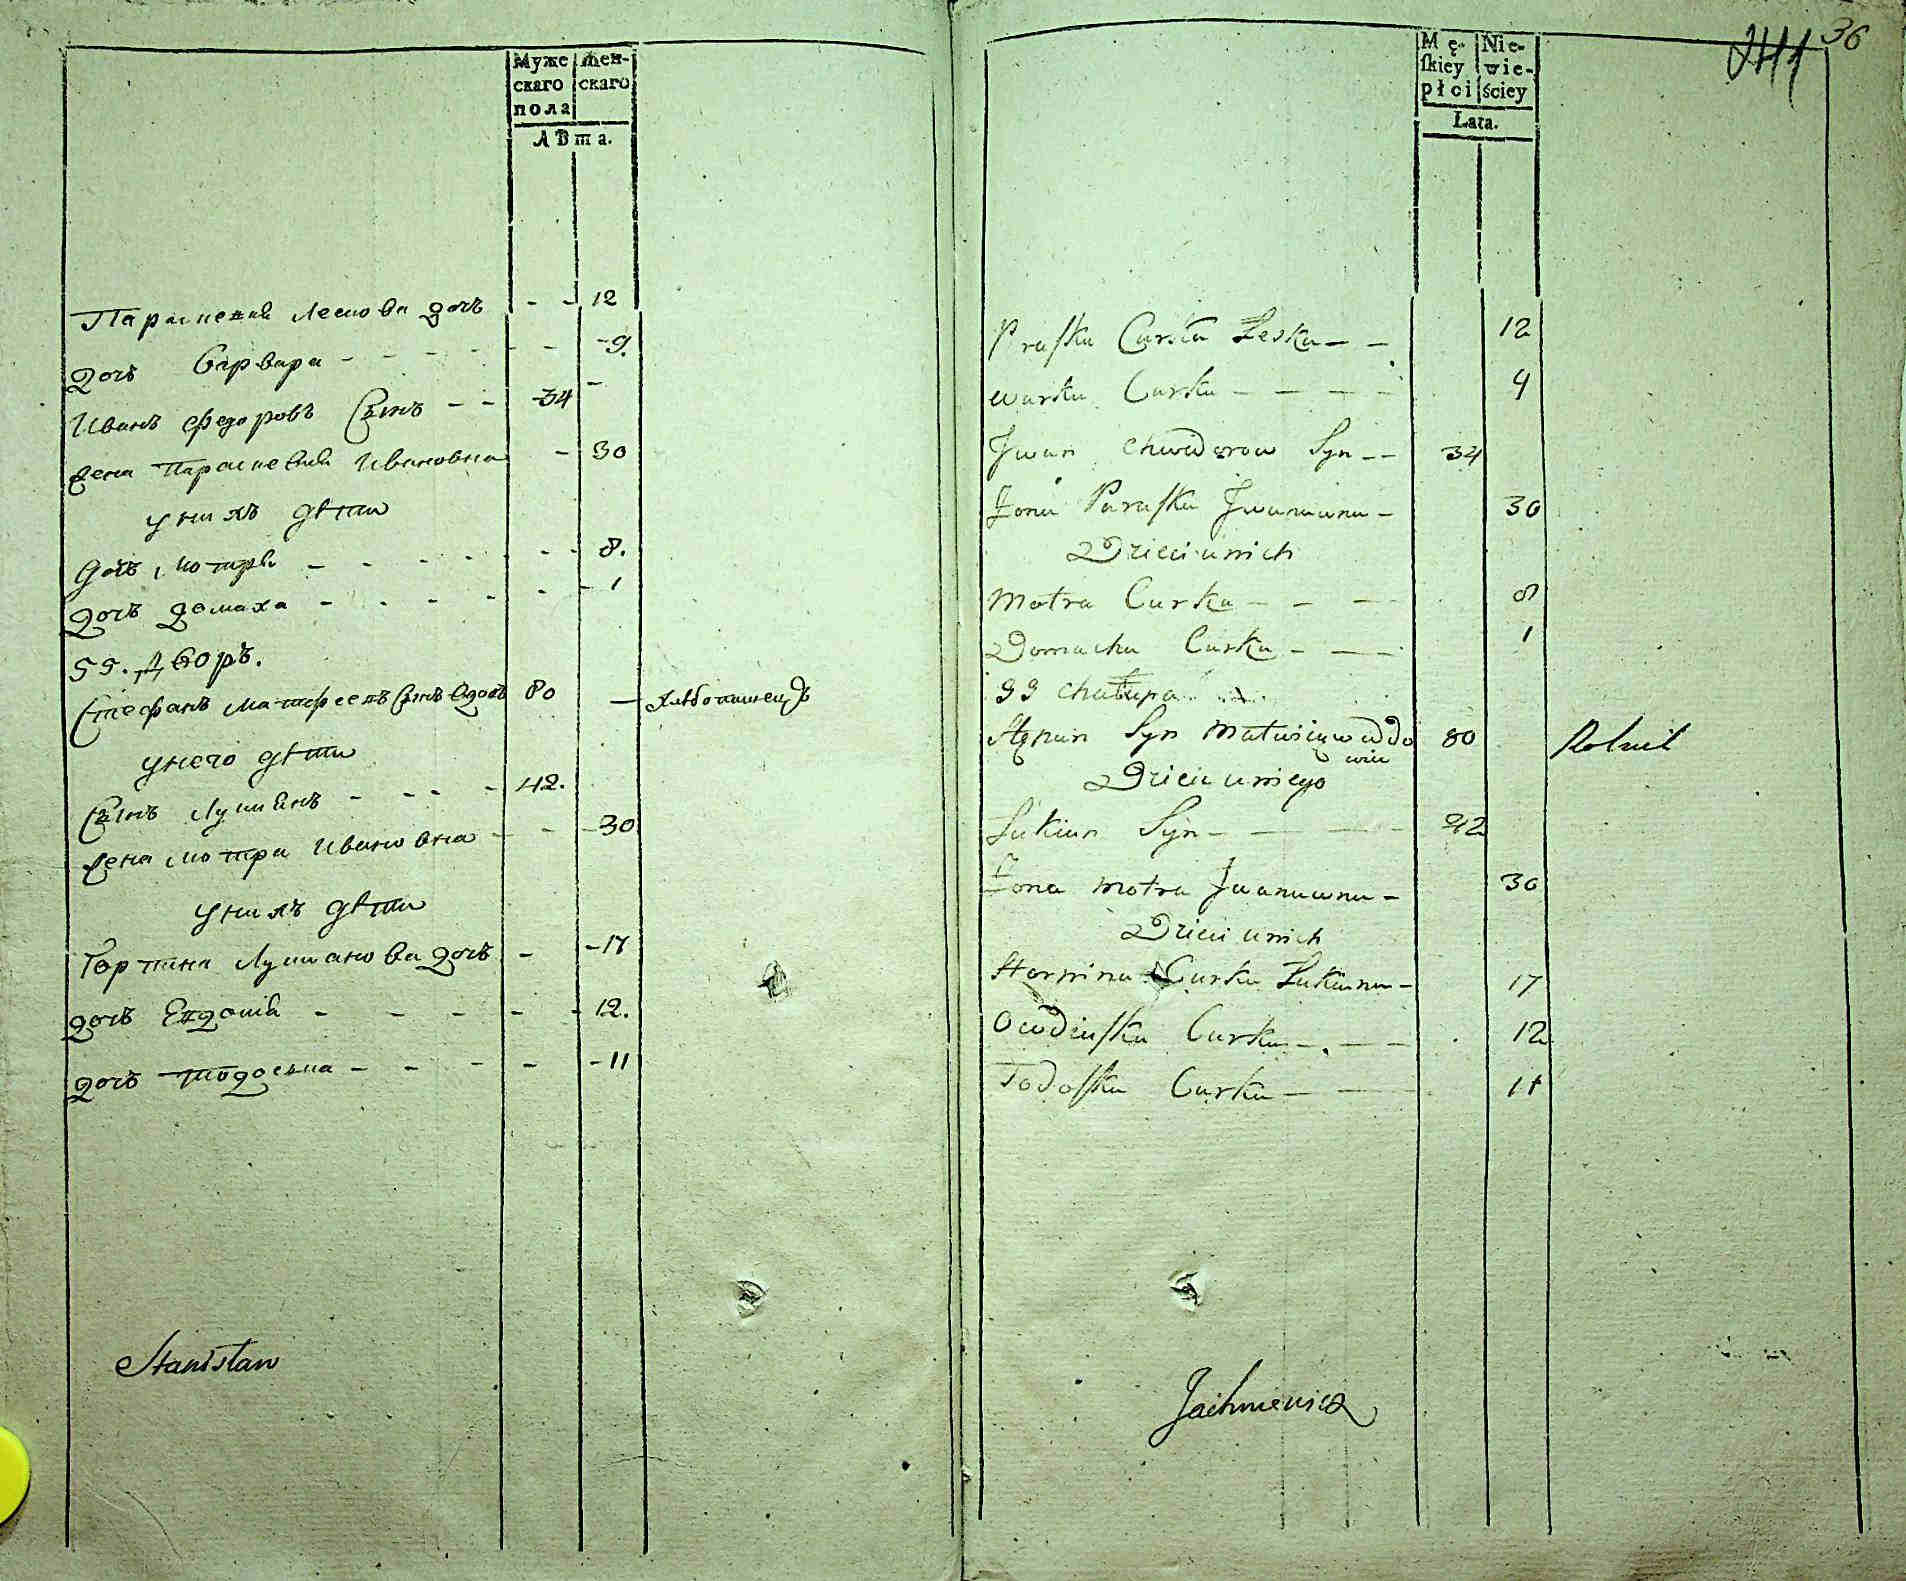 Муже
скаго
пола
Жен-
скаго
Лѣта.
Параскевия Лескова дочь - - 12
дочь Варвара - - - - - - - 9.
Иванъ Федоровъ Сынъ - - 34 -
Жена Параскевия Ивановна - 30
у нихъ дѣти
дочь Мотря - - - - - - 8.
дочь Домаха - - - - - - 1
99. Дворъ.
Стефанъ Матфеевъ Сынъ Вдовъ 80 — Хлѣбопашецъ
у него дѣти
Сынъ Лукианъ - - - - 42.
Жена Мотря Ивановна - - - 30
у нихъ дѣти
Горпина Лукианова дочь - - 17
дочь Евдокия - - - - - 12.
дочь Тодоська - - - - - 11
Stanisław
36
Mę-
skiey
płci
Nie-
wie-
ściey
Lata.
Praska Curka Leska - - 12
Warka Curka - - - - 9
Jwan Chwedorow Syn - - 34
Żona Paraska Jwanuwna - 30
Dzieci u nich
Motra Curka - - - 8
Domacha Curka - - - 1
99 Chałupa
Stepan Syn Matwieiow wdo 80 Rolnik
wiec
Dzieci u niego
Łukian Syn - - - - 42
Żona Motra Jwanuwna - 30
Dzieci u nich
Horpina Curka Łukiana - 17
Owdiuska Curka - - - - 12
Todoska Curka - - - 11
Jachimowicz